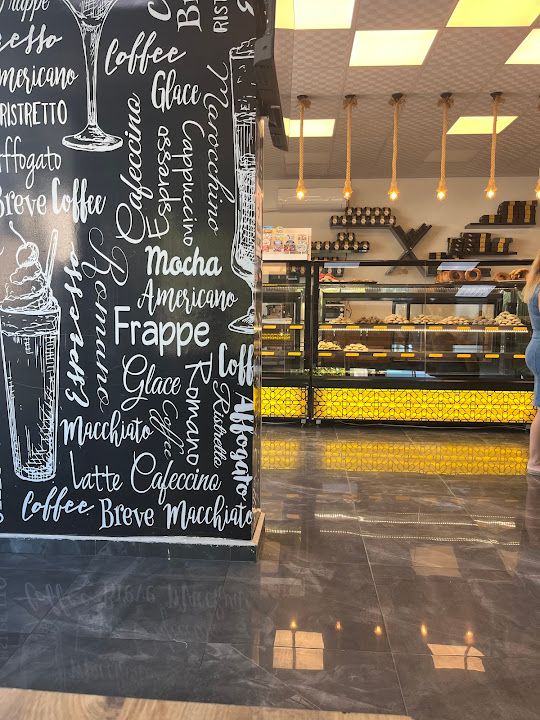 Frappe
RISTRETTO
Coffee
Americano
Glace
RISTRETTO
Marocchino
Cafeccino
Espresso
Cappuccino
Affogato
Breve Coffee
Mocha
Romano
Espresso
Americano
Frappe
Coff
Glace
Coffee
Romano
Ristretto
Affogato
Macchiato
Latte Cafeccino
Coffee
Breve Macchiato